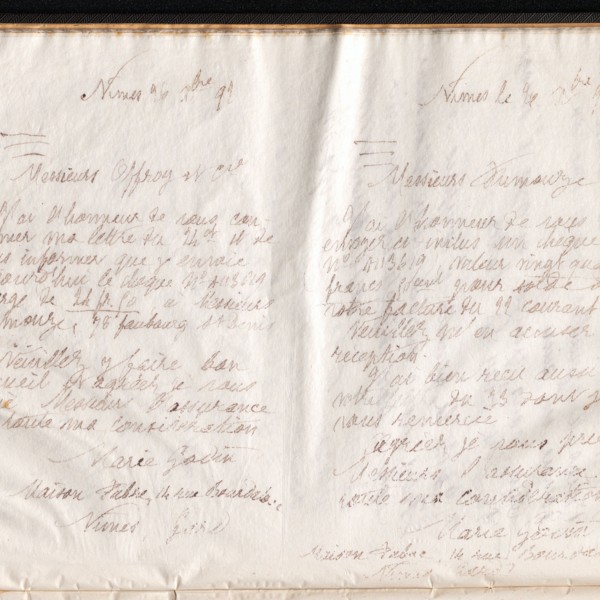 Nimes 26 Xbre 99
Messieurs Offroy et Cie
J'ai l'honneur de vous con-
mer ma lettre du 24 et de
informer que j'envoie
jourd'hui le chèque N° 413619
de 24 fr. 50 à Messieurs
75 faubourg St Denis
Veuillez y faire bon
ueil et agréer je vous
Messieurs l'assurance
toute ma considération
Marie Godin
Maison Fabre, 14 rue Bourdaloue
Nimes Gard
Nimes le 26 Xbre
Messieurs Dumouze
J'ai l'honneur de vous
envoyer ci-inclus un chèque
N° 413619 valeur vingt qua
francs pour solde
votre facture du 22 courant
Veuillez m'en accuser
réception.
J'ai bien reçu aussi
du 23 dont je
vous remercie
agréer je vous prie
Messieurs l'assurance
toute ma considération
Marie Godin
Maison Fabre, 14 rue Bourda
Nimes